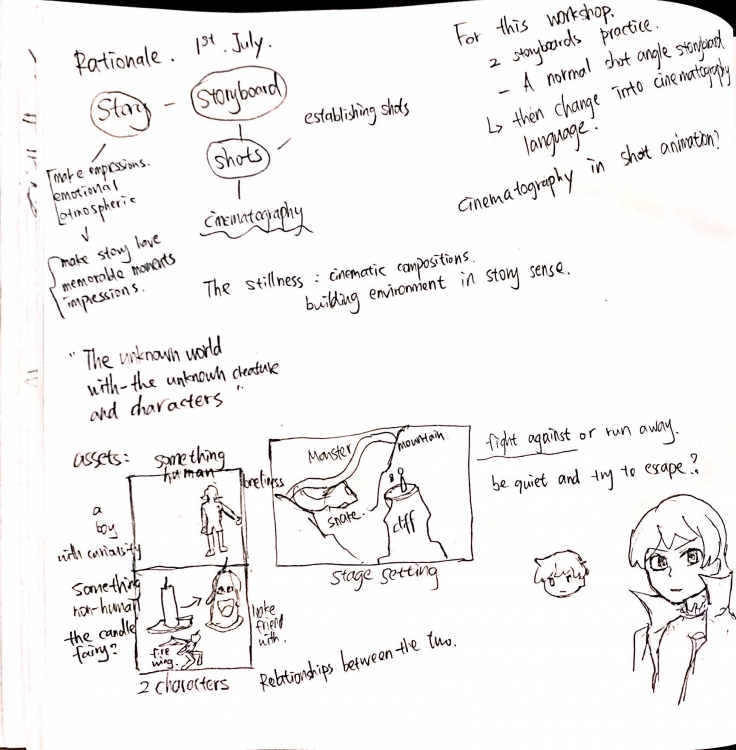 Rationale. 1st. July.
Story - Storyboard
establishing shots
shots
cinematography
make expressions.
emotional
atmospheric
make story have
memorable moments
impressions.
For this workshop.
2 storyboards practice.
- A normal shot angle storyboard
↳ then change into cinematography
language.
cinematography in shot animation?
The stillness : cinematic compositions.
building environment in story sense.
"The unknown world
with the unknown creature
and characters"
assets:
something
human
loneliness
a
boy
with curiosity
something
non-human
the candle
fairy?
fire
wing.
make
friend
with.
2 characters
Relationships between the two.
Monster
mountain
snake.
cliff
stage setting
fight against or run away.
be quiet and try to escape?